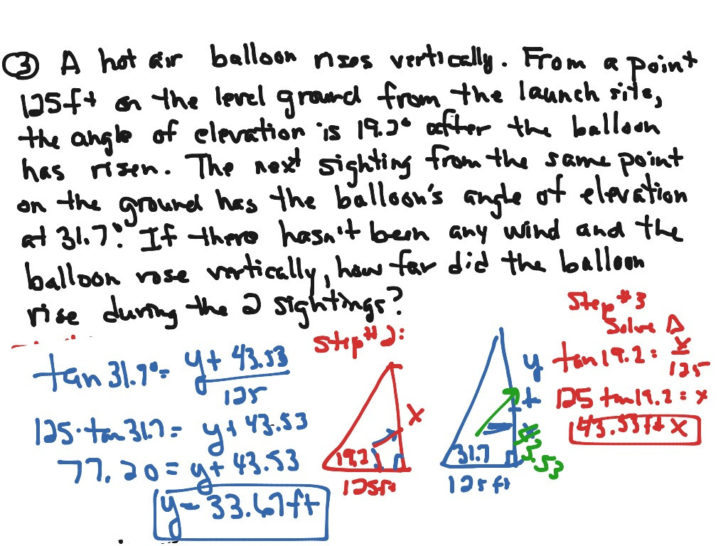 ③ A hot air balloon rises vertically. From a point
125ft on the level ground from the launch site,
the angle of elevation is 19.2° after the balloon
has risen. The next sighting from the same point
on the ground has the balloon's angle of elevation
at 31.7°. If there hasn't been any wind and the
balloon rose vertically, how far did the balloon
rise during the 2 sightings?
Step #3
Solve Δ
tan 19.2 = x/125
125 tan 19.2 = x
43.53ft x
Step #2:
x
19.2
125ft
y
+
31.7
125 ft
tan 31.7° = y + 43.53 / 125
125 · tan 31.7 = y + 43.53
77.20 = y + 43.53
y = 33.67ft